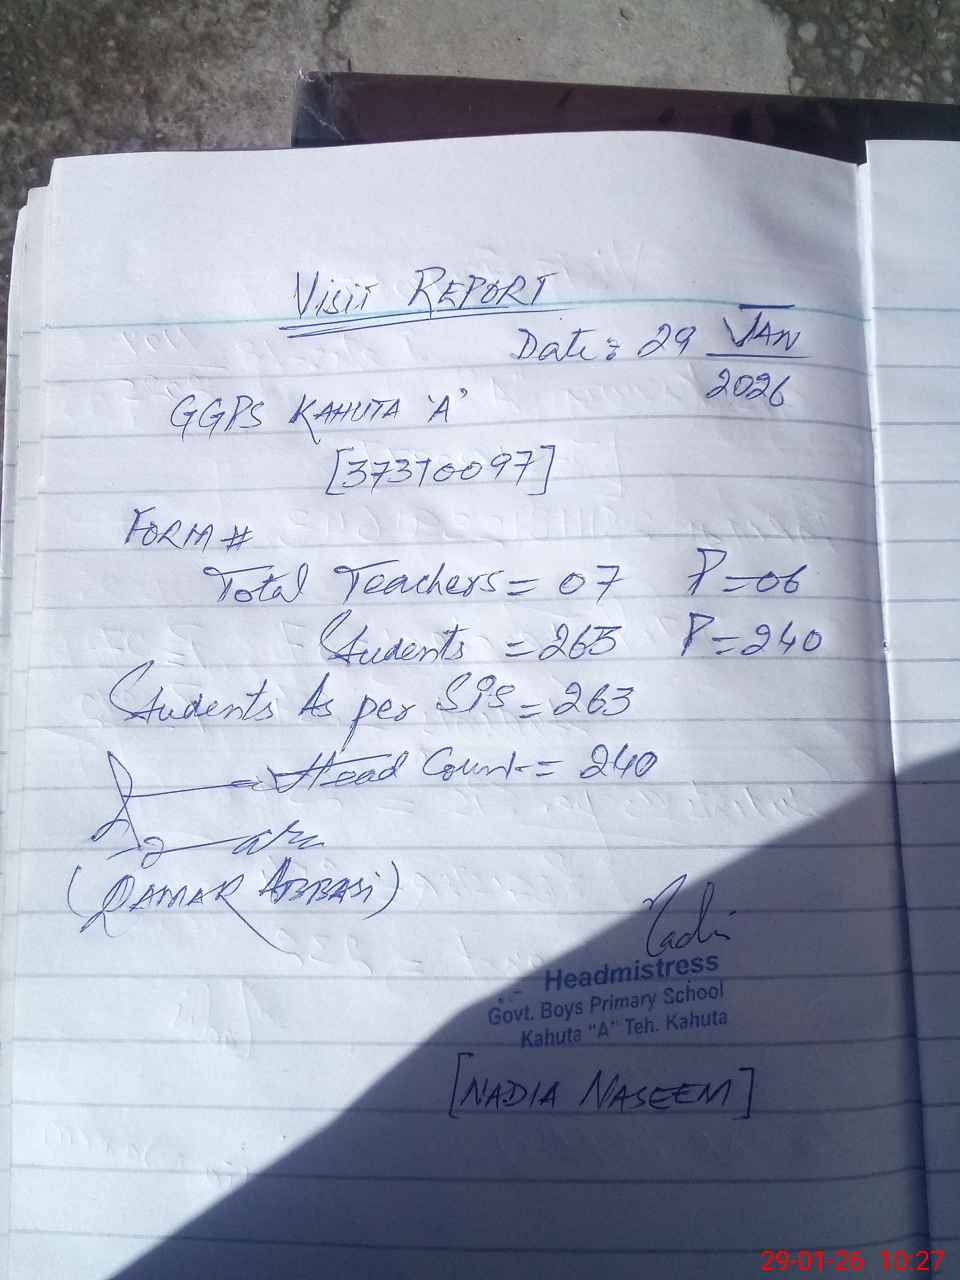 VISIT REPORT
Date: 29 JAN
2026
GGPS KAHUTA 'A'
[37370097]
FORM #
Total Teachers = 07 P = 06
Students = 263 P = 240
Students As per SIS = 263
Head Count = 240
(QAMAR ABBASI)
Nadia
Headmistress
Govt. Boys Primary School
Kahuta "A" Teh. Kahuta
[NADIA NASEEM]
29-01-26 10:27